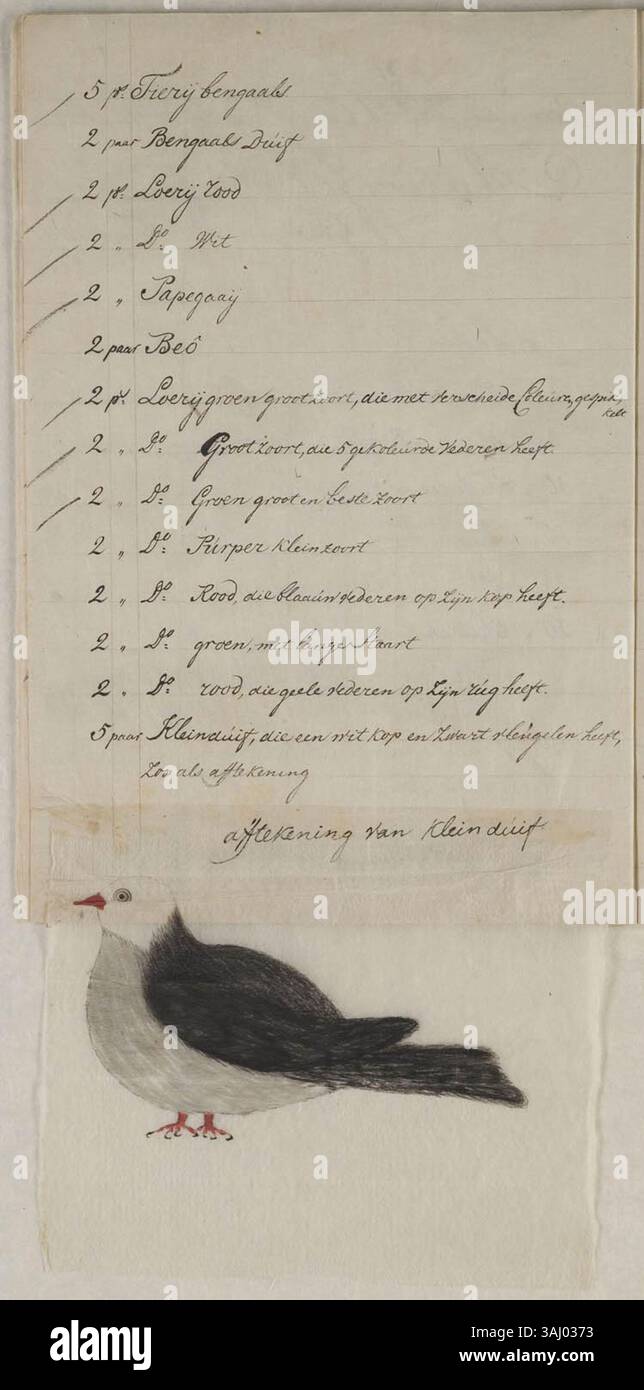 5 pr. Tierij bengaals
2 paar Bengaals Duif
2 pr. Loerij rood
2 " Do: Wit
2 " Papegaaij
2 paar Beô
2 pr. Loerij groen groot zoort, die met verscheide Coleure, gespik,
kelt
2 " Do: Groot zoort, die 5 gekoleurde vederen heeft.
2 " Do: Groen groot en beste zoort
2 " Do: Purper klein zoort
2 " Do: Rood, die blaauw vederen op zijn kop heeft.
2 " Do: groen, met lange staart
2 " Do: rood, die geele vederen op zijn rúg heeft.
5 paar Klein dúif, die een wit kop en zwart vleúgelen heeft,
zoo als aftekening
aftekening van klein dúif
alamy
Image ID: 2AJ0373
www.alamy.com